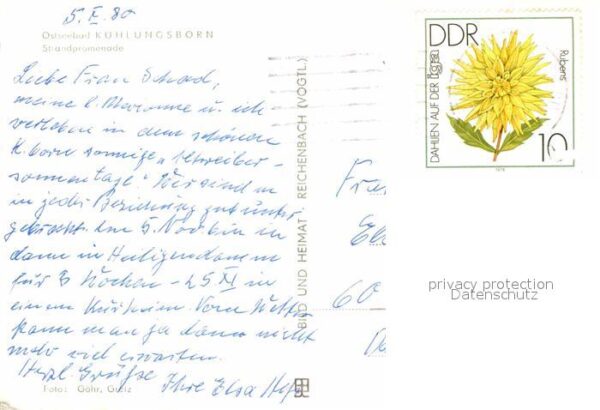 5. X. 80
Ostseebad KÜHLUNGSBORN
Strandpromenade
Liebe Frau Schad,
meine l. Marianne u. ich
verleben in dem schönen
K.born sonnige "Schreiber-
sonnentage". Wir sind in
in jeder Beziehung gut unter
gebracht. Am 5. Nov. bin
dann in Heiligendamm
für 3 Wochen - 25 XI in
einem Kurheim. Vom Wetter
kann man ja dann nicht
mehr viel erwarten.
Herzl. Grüße
Ihre Elsa
Foto: Göhr, Greiz
BILD UND HEIMAT · REICHENBACH (VOGTL.)
DDR
DAHLIEN AUF DER
Rubens
10
1979
60
privacy protection
Datenschutz